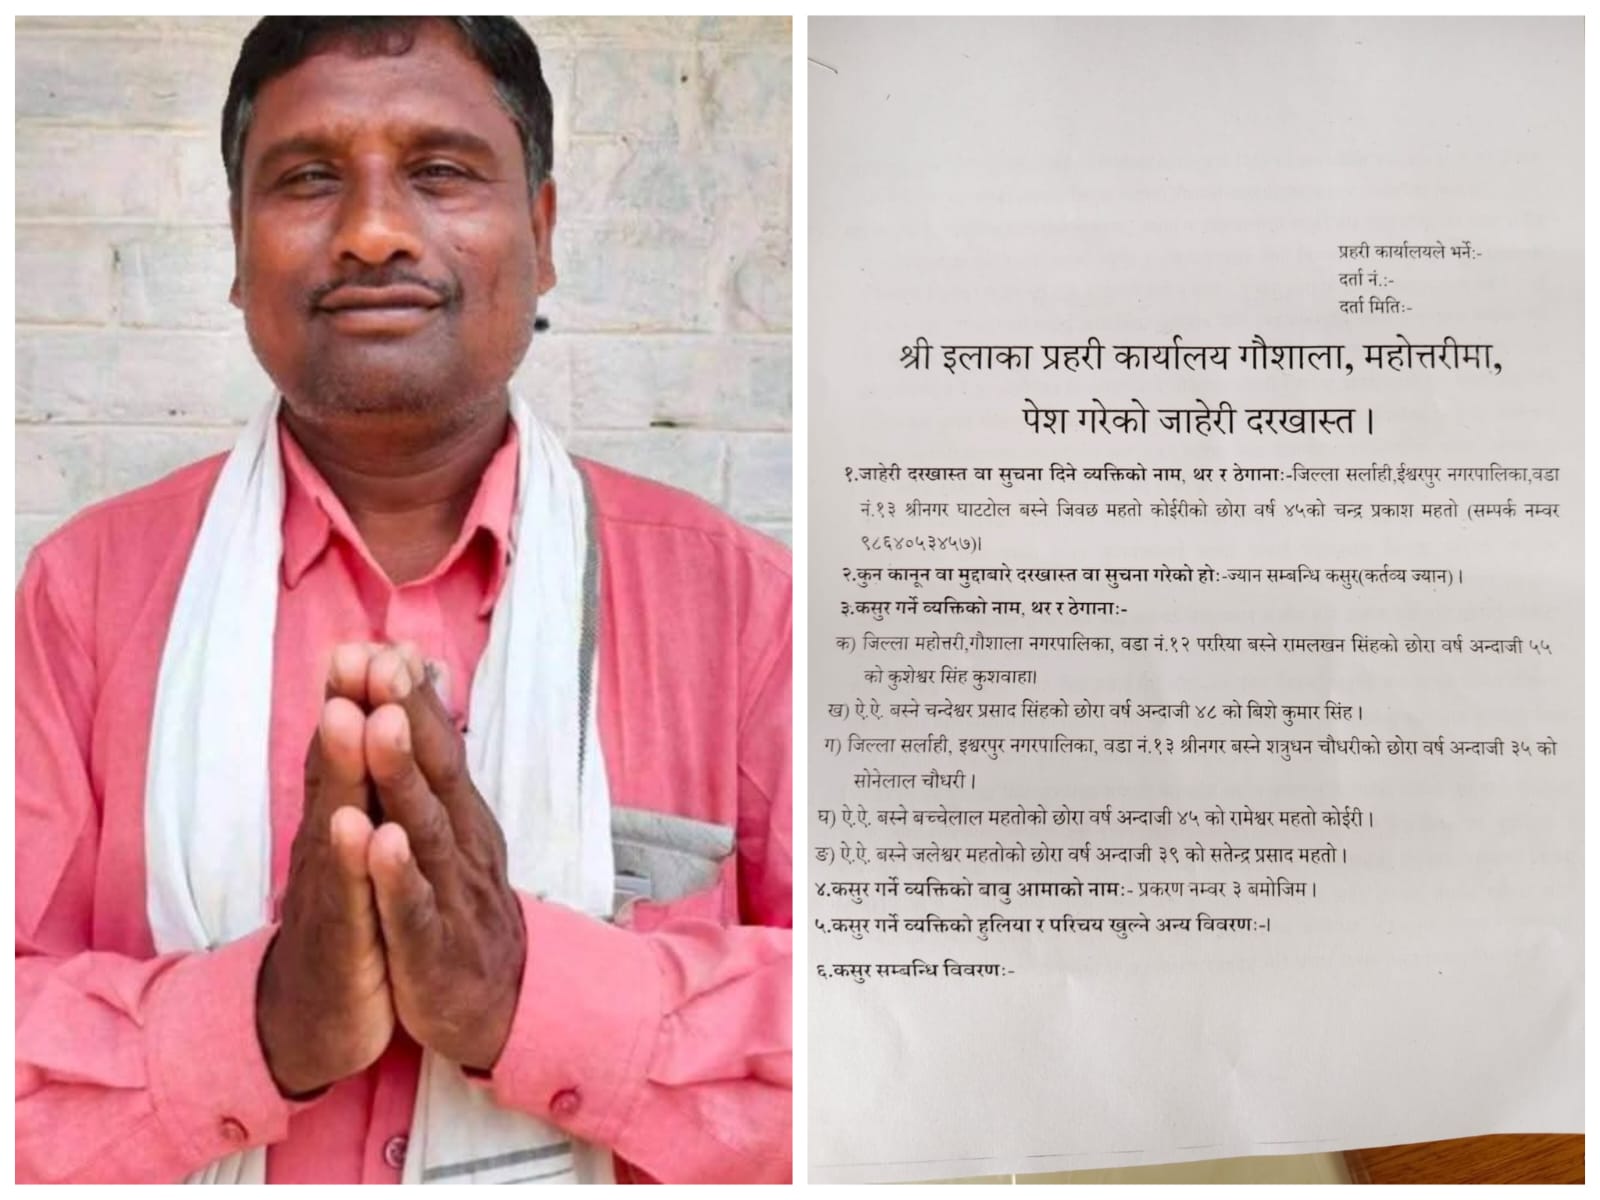 प्रहरी कार्यालयले भर्ने:-
दर्ता नं.:-
दर्ता मिति:-
श्री इलाका प्रहरी कार्यालय गौशाला, महोत्तरीमा,
पेश गरेको जाहेरी दरखास्त ।
१.जाहेरी दरखास्त वा सुचना दिने व्यक्तिको नाम, थर र ठेगाना:-जिल्ला सर्लाही,ईश्वरपुर नगरपालिका,वडा
नं.१३ श्रीनगर घाटटोल बस्ने जिवछ महतो कोईरीको छोरा वर्ष ४५को चन्द्र प्रकाश महतो (सम्पर्क नम्वर
९८६४०५३४५७)।
२.कुन कानून वा मुद्दाबारे दरखास्त वा सुचना गरेको हो:-ज्यान सम्बन्धि कसुर(कर्तव्य ज्यान) ।
३.कसुर गर्ने व्यक्तिको नाम, थर र ठेगाना:-
क) जिल्ला महोत्तरी,गौशाला नगरपालिका, वडा नं.१२ परिरया बस्ने रामलखन सिंहको छोरा वर्ष अन्दाजी ५५
को कुशेश्वर सिंह कुशवाहा।
ख) ऐ.ऐ. बस्ने चन्देश्वर प्रसाद सिंहको छोरा वर्ष अन्दाजी ४८ को बिशे कुमार सिंह ।
ग) जिल्ला सर्लाही, इश्वरपुर नगरपालिका, वडा नं.१३ श्रीनगर बस्ने शत्रुधन चौधरीको छोरा वर्ष अन्दाजी ३५ को
सोनेलाल चौधरी ।
घ) ऐ.ऐ. बस्ने बच्चेलाल महतोको छोरा वर्ष अन्दाजी ४५ को रामेश्वर महतो कोईरी ।
ङ) ऐ.ऐ. बस्ने जलेश्वर महतोको छोरा वर्ष अन्दाजी ३९ को सतेन्द्र प्रसाद महतो ।
४.कसुर गर्ने व्यक्तिको बाबु आमाको नाम:- प्रकरण नम्वर ३ बमोजिम ।
५.कसुर गर्ने व्यक्तिको हुलिया र परिचय खुल्ने अन्य विवरण:-।
६.कसुर सम्बन्धि विवरण:-